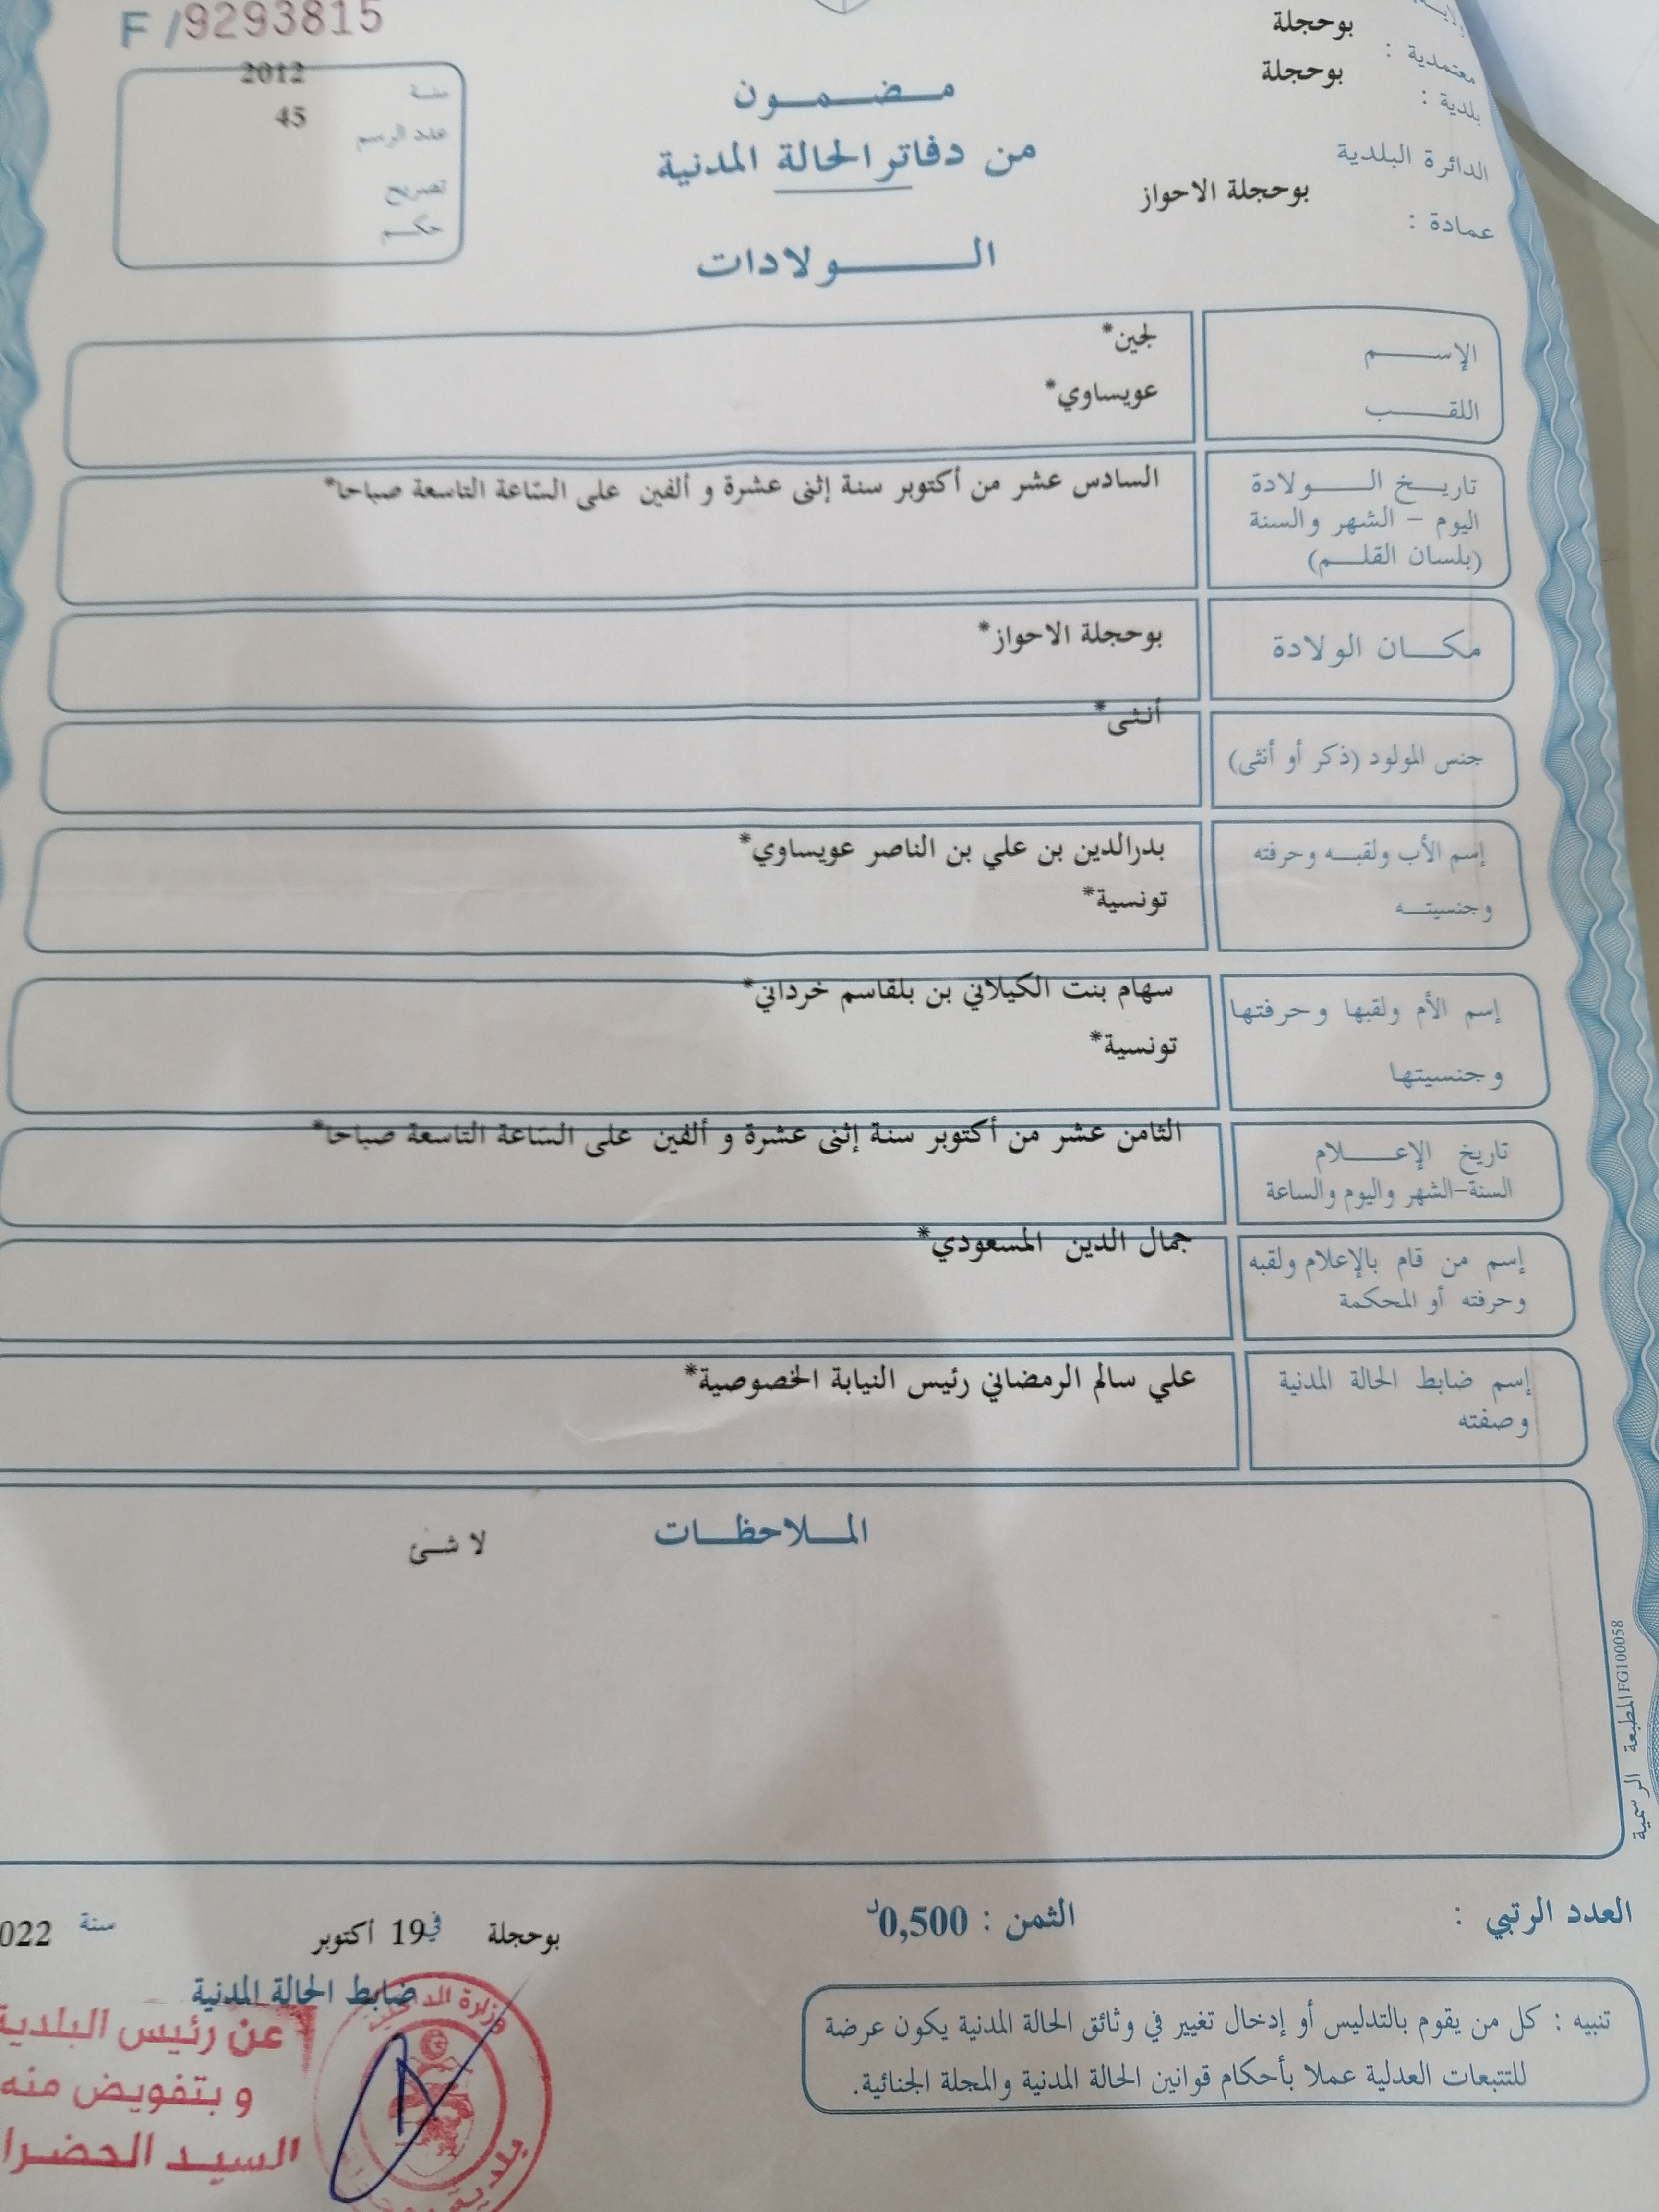 F /9293815
بوحجلة
معتمدية :
بوحجلة
بلدية :
الدائرة البلدية
بوحجلة الاحواز
عمادة :
سنة 2012
عدد الرسم 45
تصريح
حكم
مضمون
من دفاتر الحالة المدنية
الولادات
الإسم لجين*
اللقب عويساوي*
تاريخ الولادة السادس عشر من أكتوبر سنة إثنى عشرة و ألفين على السّاعة التاسعة صباحا*
اليوم - الشهر والسنة
(بلسان القلم)
مكان الولادة بوحجلة الاحواز*
جنس المولود (ذكر أو أنثى) أنثى*
إسم الأب ولقبه وحرفته بدرالدين بن علي بن الناصر عويساوي*
وجنسيته تونسية*
إسم الأم ولقبها وحرفتها سهام بنت الكيلاني بن بلقاسم خرداني*
وجنسيتها تونسية*
تاريخ الإعلام الثامن عشر من أكتوبر سنة إثنى عشرة و ألفين على السّاعة التاسعة صباحا*
السنة-الشهر واليوم والساعة
إسم من قام بالإعلام ولقبه جمال الدين المسعودي*
وحرفته أو المحكمة
إسم ضابط الحالة المدنية علي سالم الرمضاني رئيس النيابة الخصوصية*
وصفته
الملاحظات
لا شئ
المطبعة الرسمية FG100058
العدد الرتبي :
الثمن : 0,500د
بوحجلة في 19 أكتوبر سنة 022
ضابط الحالة المدنية
عن رئيس البلدية
و بتفويض منه
السيد الحضرا
وزارة الداخلية
بلدية
تنبيه : كل من يقوم بالتدليس أو إدخال تغيير في وثائق الحالة المدنية يكون عرضة
للتتبعات العدلية عملا بأحكام قوانين الحالة المدنية والمجلة الجنائية.